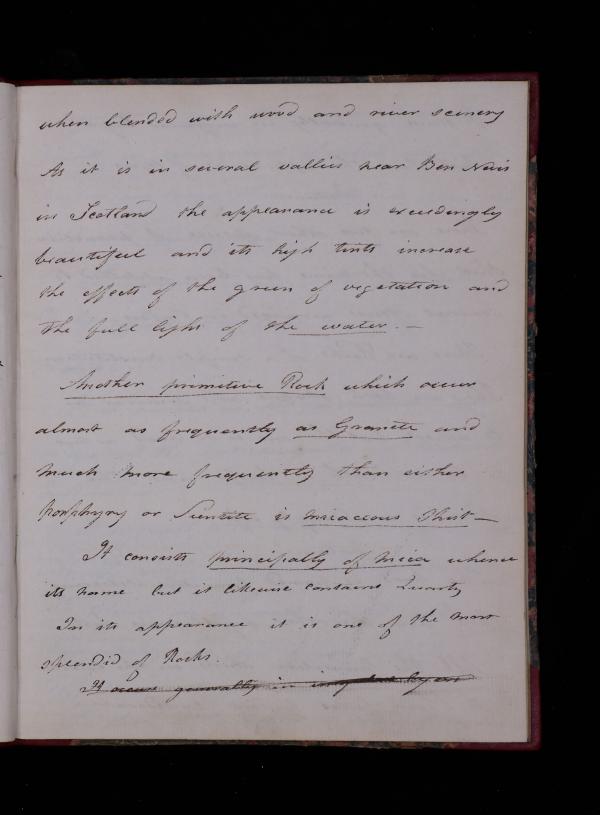 when blended with wood and river scenery
As it is in several vallies near Ben Nevis
in Scotland the appearance is exceedingly
beautiful and its high tints increase
the effects of the green of vegetation and
the full light of the water. —
Another primitive Rock which occurs
almost as frequently as Granite and
much more frequently than either
Porphyry or Sienite is micaceous Shist —
It consists principally of mica whence
its name but it likewise contains Quartz
In its appearance it is one of the most
splendid of Rocks.
It occurs generally in layers